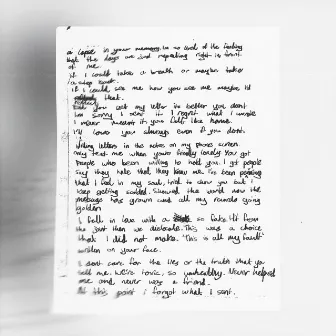 a lapse in your memory. In no end of the feeling
that the days are just repeating right in front
of me.
if I could take a breath or maybe take
a step back.
if I could see me how you see me maybe I'd
that.
you call my letter its better you dont
Im sorry I sent it I regret what I wrote
I never meant it you felt like home.
I'll love you always even if you dont.
writing letters in the notes on my phones screen
only text me when your lonely You got
people who been willing to hold you. I got people
say they hate that they knew me. Ive been
that I feel in my soul, tried to show you but I
keep getting Silenced. The world now the
message has grown and all my rounds going
golden
I fell in love with a so fake. Hit from
the just then we dislocate. This was a choice
that I did not make. "This is all my fault"
written on your face.
I dont care for the lies or the truth that you
tell me. We're toxic, so unhealthy. Never helped
me and never was a friend.
At this point I forgot what I sent.